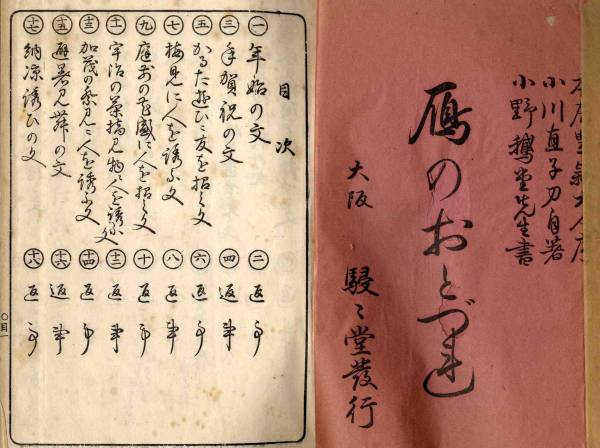 本居豊穎大人序
小川直子刀自著
小野鵞堂先生書
雁のおとづれ
大阪 駸々堂發行
目次
一 年始の文
二 返事
三 年賀祝の文
四 返事
五 かるた遊びに友を招く文
六 返事
七 梅見に人を誘ふ文
八 返事
九 庭前の花盛に人を招く文
十 返事
十一 宇治の茶摘見物に人を誘ふ文
十二 返事
十三 加茂の祭見に人を誘ふ文
十四 返事
十五 避暑見舞の文
十六 返事
十七 納凉誘ひの文
十八 返事
〇目一